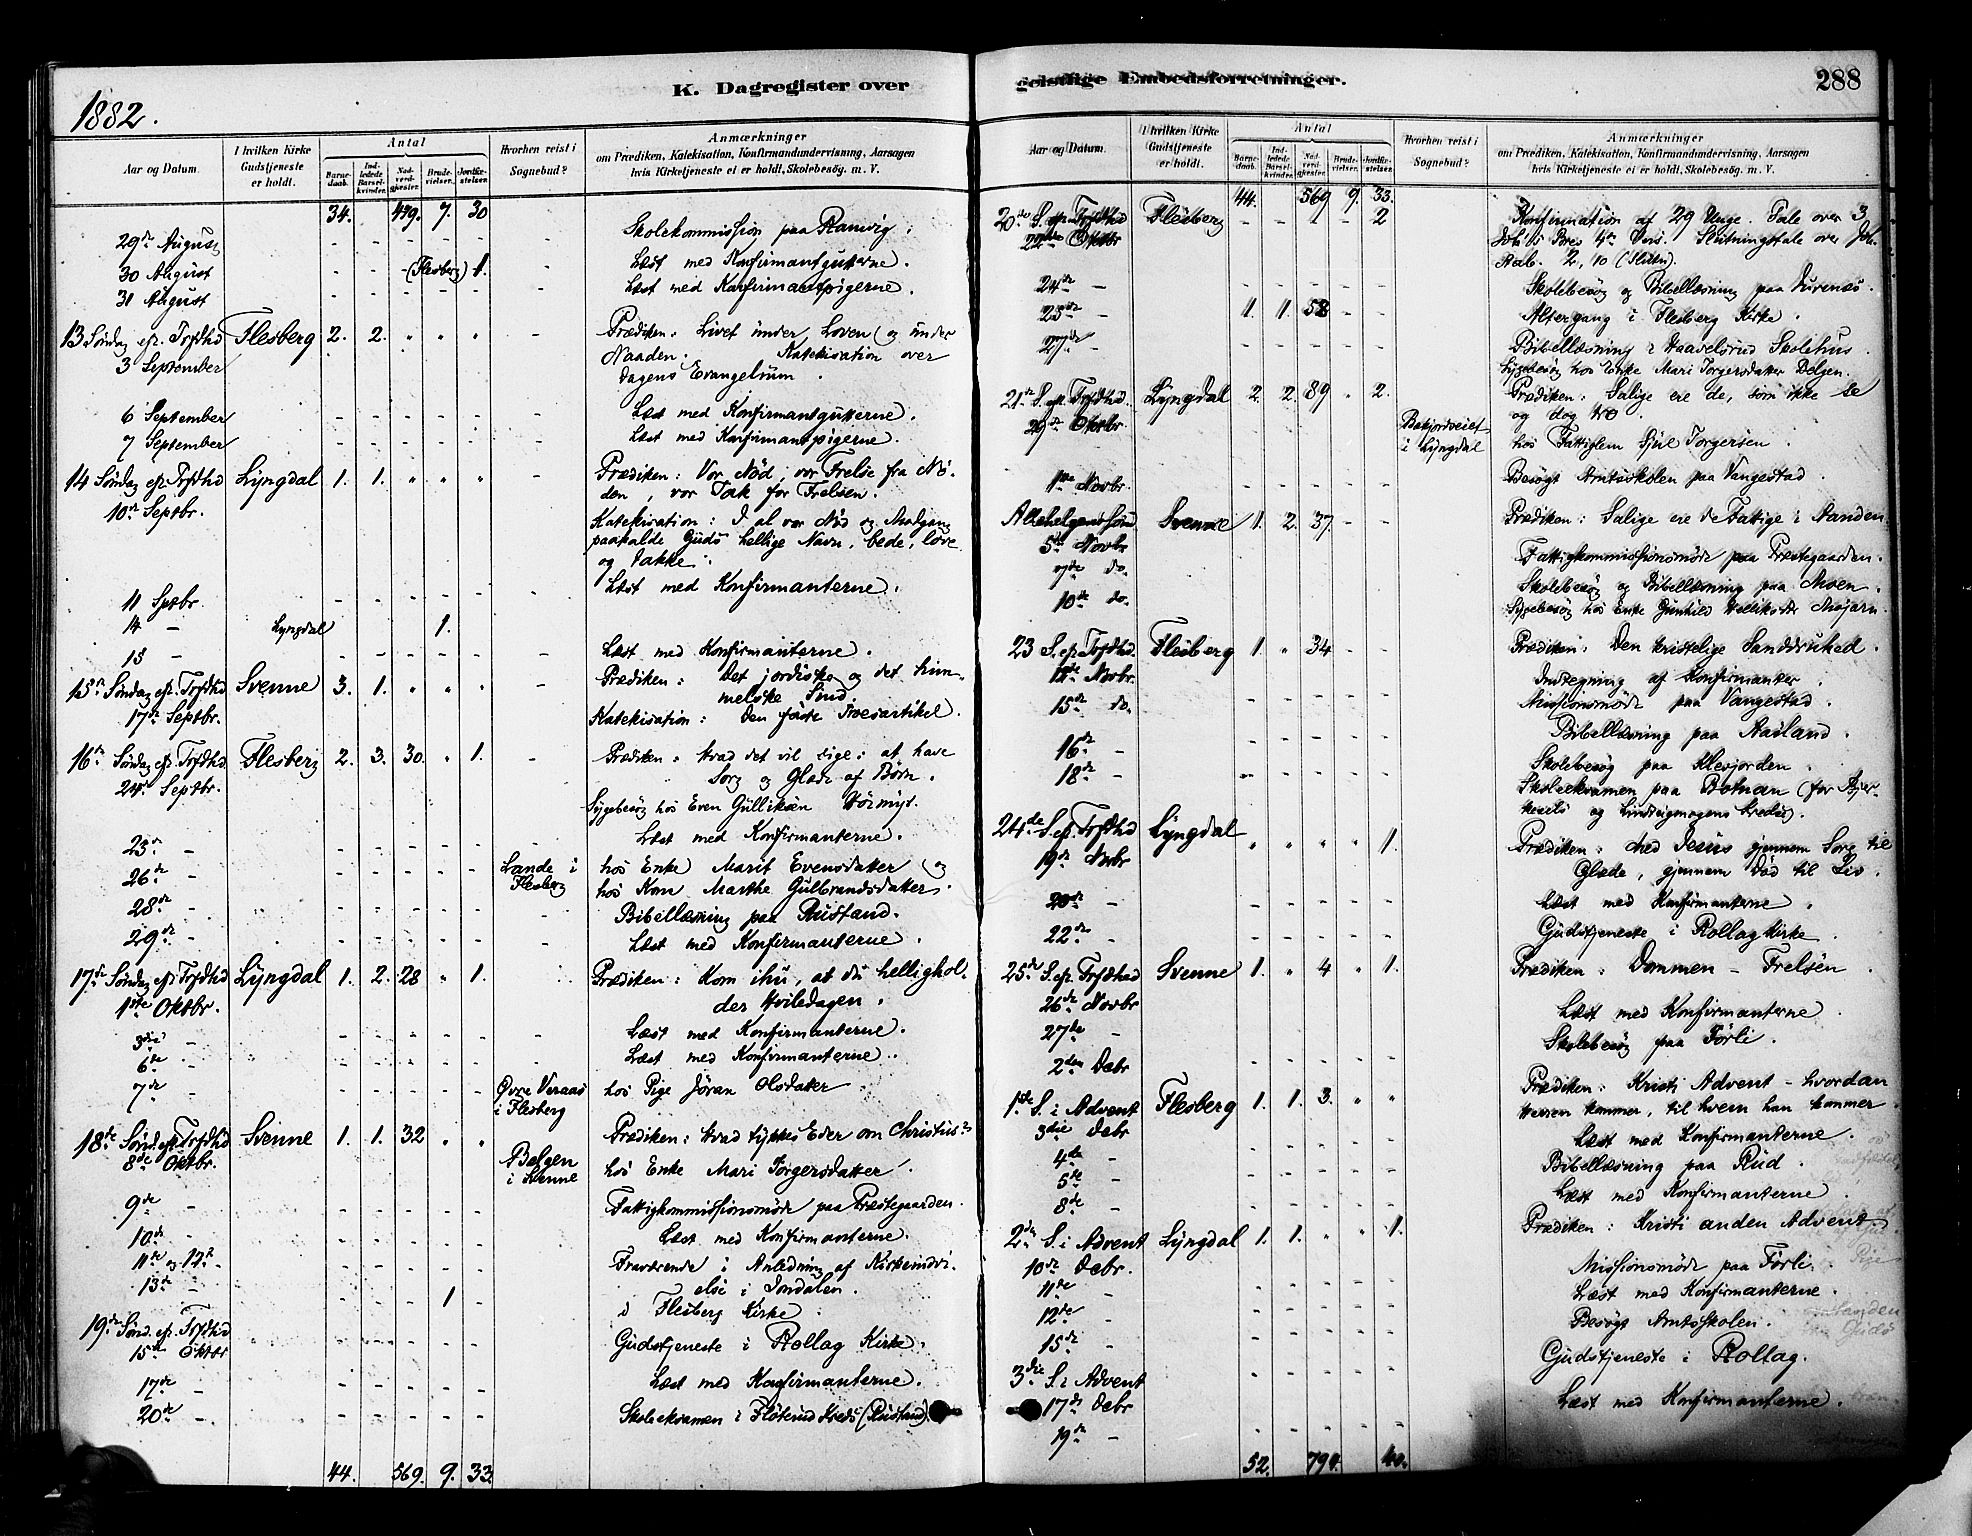 K. Dagregister over
1882.
Aar og Datum
I hvilken Kirke Gudstjeneste er holdt.
Antal
Barnedaab.
Indledede Barselkvinder.
Nadverdgjester.
Brudevielser.
Jordfæstelser.
Hvorhen reist i Sognebud?
Anmærkninger
om Prædiken, Katekisation, Konfirmandundervisning, Aarsagen
hvis Kirketjeneste ei er holdt, Skolebesøg. m. V.
34. 479. 7. 30
29de August - - - - - Skolekommission paa
30 August - - - - (Flesberg) 1. - Læst med Konfirmantgutterne.
31 August - - - - - Læst med Konfirmantpigerne.
13 Søndag ef. Trefdhd Flesberg 2. 2. " " " - Prædiken: Livet under Loven (og under
3 September Naaden. Katekisation over
dagens Evangelium.
6 September - - - - - - Læst med Konfirmantgutterne.
7 September - - - - - - Læst med Konfirmantpigerne.
14 Søndag ef. Trefdhd Lyngdal 1. 1. " " " - Prædiken: Vor Nød, vor Frelse fra Nø-
10de Septbr. den, vor Tak for Frelsen.
Katekisation: I al vor Nød og
paakalde Guds hellige Navn, bede, love
og takke.
11 Sptbr. - - - - - - Læst med Konfirmanterne.
14 - Lyngdal 1.
15 - - - - - - Læst med Konfirmanterne.
15de Søndag ef. Trefdhd Svenne 3. 1. " " " - Prædiken: Det jordiske og det him-
17de Septbr. melske Sind.
Katekisation: Den første Troesartikel.
16de Søndag ef. Trefdhd Flesberg 2. 3. 30. " 1. - Prædiken: Hvad det vil sige: at have
24de Septbr. Sorg og Glæde af Børn.
Sygebesøg hos Even Gulliksen
Læst med Konfirmanterne.
- - - - -
26de - - - - - - Lande i Flesberg hos Enke Marit Evensdatter og
hos Kone Marthe Gulbrandsdatter.
28de - - - - - - - Bibellæsning paa Rustand.
29de - - - - - - - Læst med Konfirmanterne.
17de Søndag ef. Trefdhd Lyngdal 1. 2. 28 " 1. Prædiken: Kom ihu, at du hellighol-
1ste Oktbr. der Hviledagen.
3die - - - - - - - Læst med Konfirmanterne.
6te - - - - - - - Læst med Konfirmanterne.
7de - - - - - - Øvre Veraas i Flesberg hos Pige Jøran Olsdatter
18de Sønd. ef. Trefdhd Svenne 1. 1. 32 " " Prædiken: Hvad tykkes Eder om Christus?
8de Oktbr. i Svenne hos Enke Mari Torgersdatter.
9de - - - - - - Fattigkommissionsmøde paa Præstegaarden.
10de - - - - - - Læst med Konfirmanterne.
11te og 12te - - - - - - Fraværende i Anledning af Kirkeindvi-
else i Jondalen.
13de - - - - 1 - i Flesberg Kirke
19de Sønd. ef. Trefdhd
15de Oktbr - - - - - Gudstjeneste i Rollag Kirke.
17de - - - - - - Læst med Konfirmanterne.
20de - - - - - - Skoleexamen i Kreds (Rustand)
44. 569. 9. 33.
geistlige Embedsforretninger.
288
Aar og Datum.
I hvilken Kirke Gudstjeneste er holdt.
Antal
Barnedaab.
Indledede Barselkvinder.
Nadverdgjester.
Brudevielser.
Jordfæstelser.
Hvorhen reist i Sognebud?
Anmærkninger
om Prædiken, Katekisation, Konfirmandundervisning, Aarsagen
hvis Kirketjeneste ei er holdt, Skolebesøg m. V.
44. 569 9. 33.
20de S. ef. Trefdhd Flesberg - - - - 2 Konfirmation af 29 Unge. Tale over 3
22de Oktbr Joh's Brev 4de Vers. Slutningstale over Joh.
Aab. 2, 10 (Slutn).
24de - - - - - - Skolebesøg og Bibellæsning paa
25de - 1. 1. 58 - - Altergang i Flesberg Kirke.
27de - - - - - - Bibellæsning i Haavelsrud Skolehus.
Sygebesøg hos Enke Mari Torgersdatter
21de S. ef. Trefdhd. Lyngdal 2. 2. 89 " 2. Prædiken: Salige ere de, som ikke se
29de Oktbr og dog tro.
i Lyngdal hos Fattiglem Sjul Torgersen.
1ste Novbr. - - - - - Besøgt Amtsskolen paa Vangestad.
Allehelgens Svenne 1. 2. 37. - - Prædiken: Salige ere de Fattige i Aanden.
5te Novbr Fattigkommissionsmøde paa Præstegaarden.
7de do. - - - - - Skolebesøg og Bibellæsning paa Moen.
10de do. - - - - - Sygebesøg hos Enke Gunhild
23 S. ef. Trefdhd. Flesberg 1. " 34 - - Prædiken: Den kristelige Sanddruhed.
12te Novbr. Indtegning af Konfirmanter.
15de do. - - - - - Missionsmøde paa Vangestad.
16de - - - - - - Bibellæsning paa Aasland.
18de - - - - - - Skolebesøg paa
Skoleexamen paa Botnan (for
og Kredse).
24de S. ef. Trefdhd Lyngdal " " " " 1. Prædiken: Med Jesus gjennem Sorg til
19de Nvbr Glæde, gjennem Død til Liv.
20de - - - - - - Læst med Konfirmanterne.
22de - - - - - - Gudstjeneste i Rollag Kirke.
25de S. ef. Trefdhd Svenne 1. " 4 " 1. Prædiken: Dommen - Frelsen.
26de Novbr
27de - Læst med Konfirmanterne.
2den Debr - - - - - Skolebesøg paa Førli.
1ste S. i Advent Flesberg 1. 1. 3. " " Prædiken: Kristi Advent - hvordan
3die Debr Herren kommer, til hvem han kommer.
4de - - - - - - Læst med Konfirmanterne.
5te - - - - - - Bibellæsning paa Rud.
8de - - - - - - Læst med Konfirmanterne.
2den S. i Advent Lyngdal 1. 1. " " 1. Prædiken: Kristi anden Advent.
10de Debr.
11te - - - - - - Missionsmøde paa Førli.
12te - - - - - - Læst med Konfirmanterne.
15de - - - - - - Besøgt Amtsskolen.
3die S. i Advent
17de Debr - - - - - Gudstjeneste i Rollag.
19de - - - - - - Læst med Konfirmanterne.
52. 794. 40.